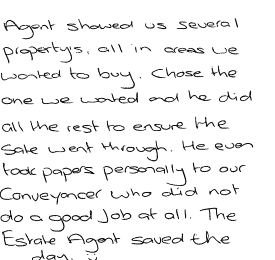 Agent showed us several
property's, all in areas we
wanted to buy. Chose the
one we wanted and he did
all the rest to ensure the
Sale went through. He even
took papers personally to our
Conveyancer who did not
do a good Job at all. The
Estate Agent saved the
day. :)